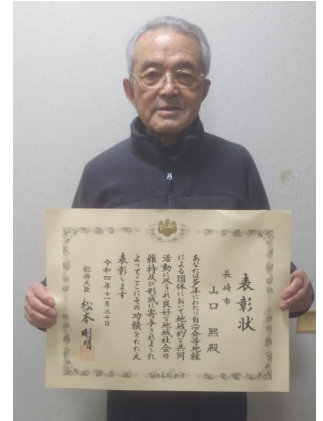 表彰状
長崎市
山口 熙 殿
あなたは多年にわたり自治会等地縁
による団体において地域的な共同
活動に尽され良好な地域社会の
維持及び形成に寄与されました
よってここにその功績をたたえ
表彰します
令和四年十一月三十日
総務大臣 松本剛明